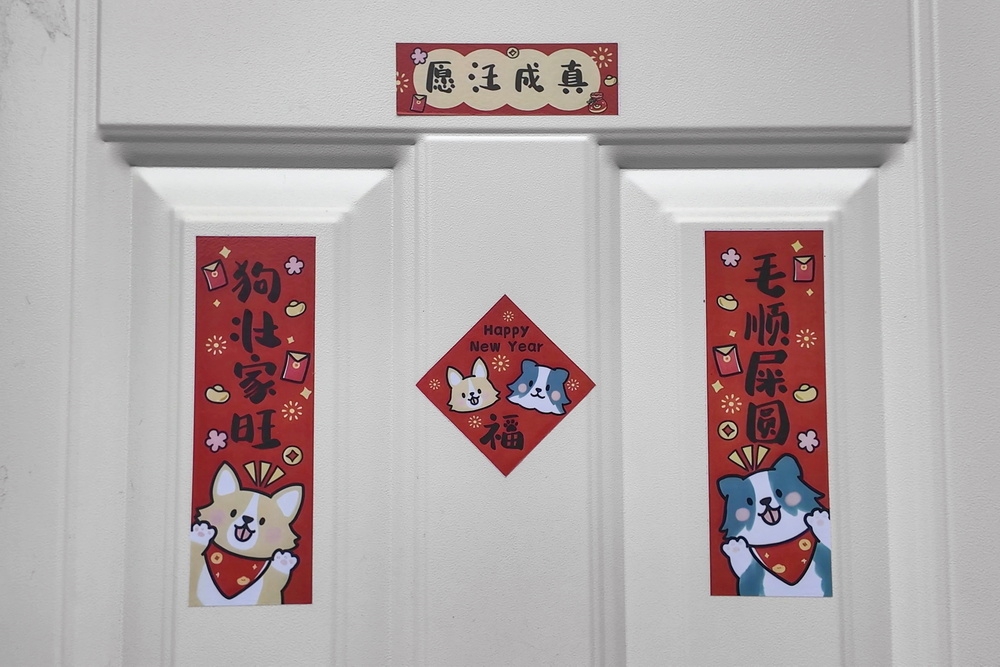 愿汪成真
狗壮家旺
Happy
New Year
福
毛顺屎圆